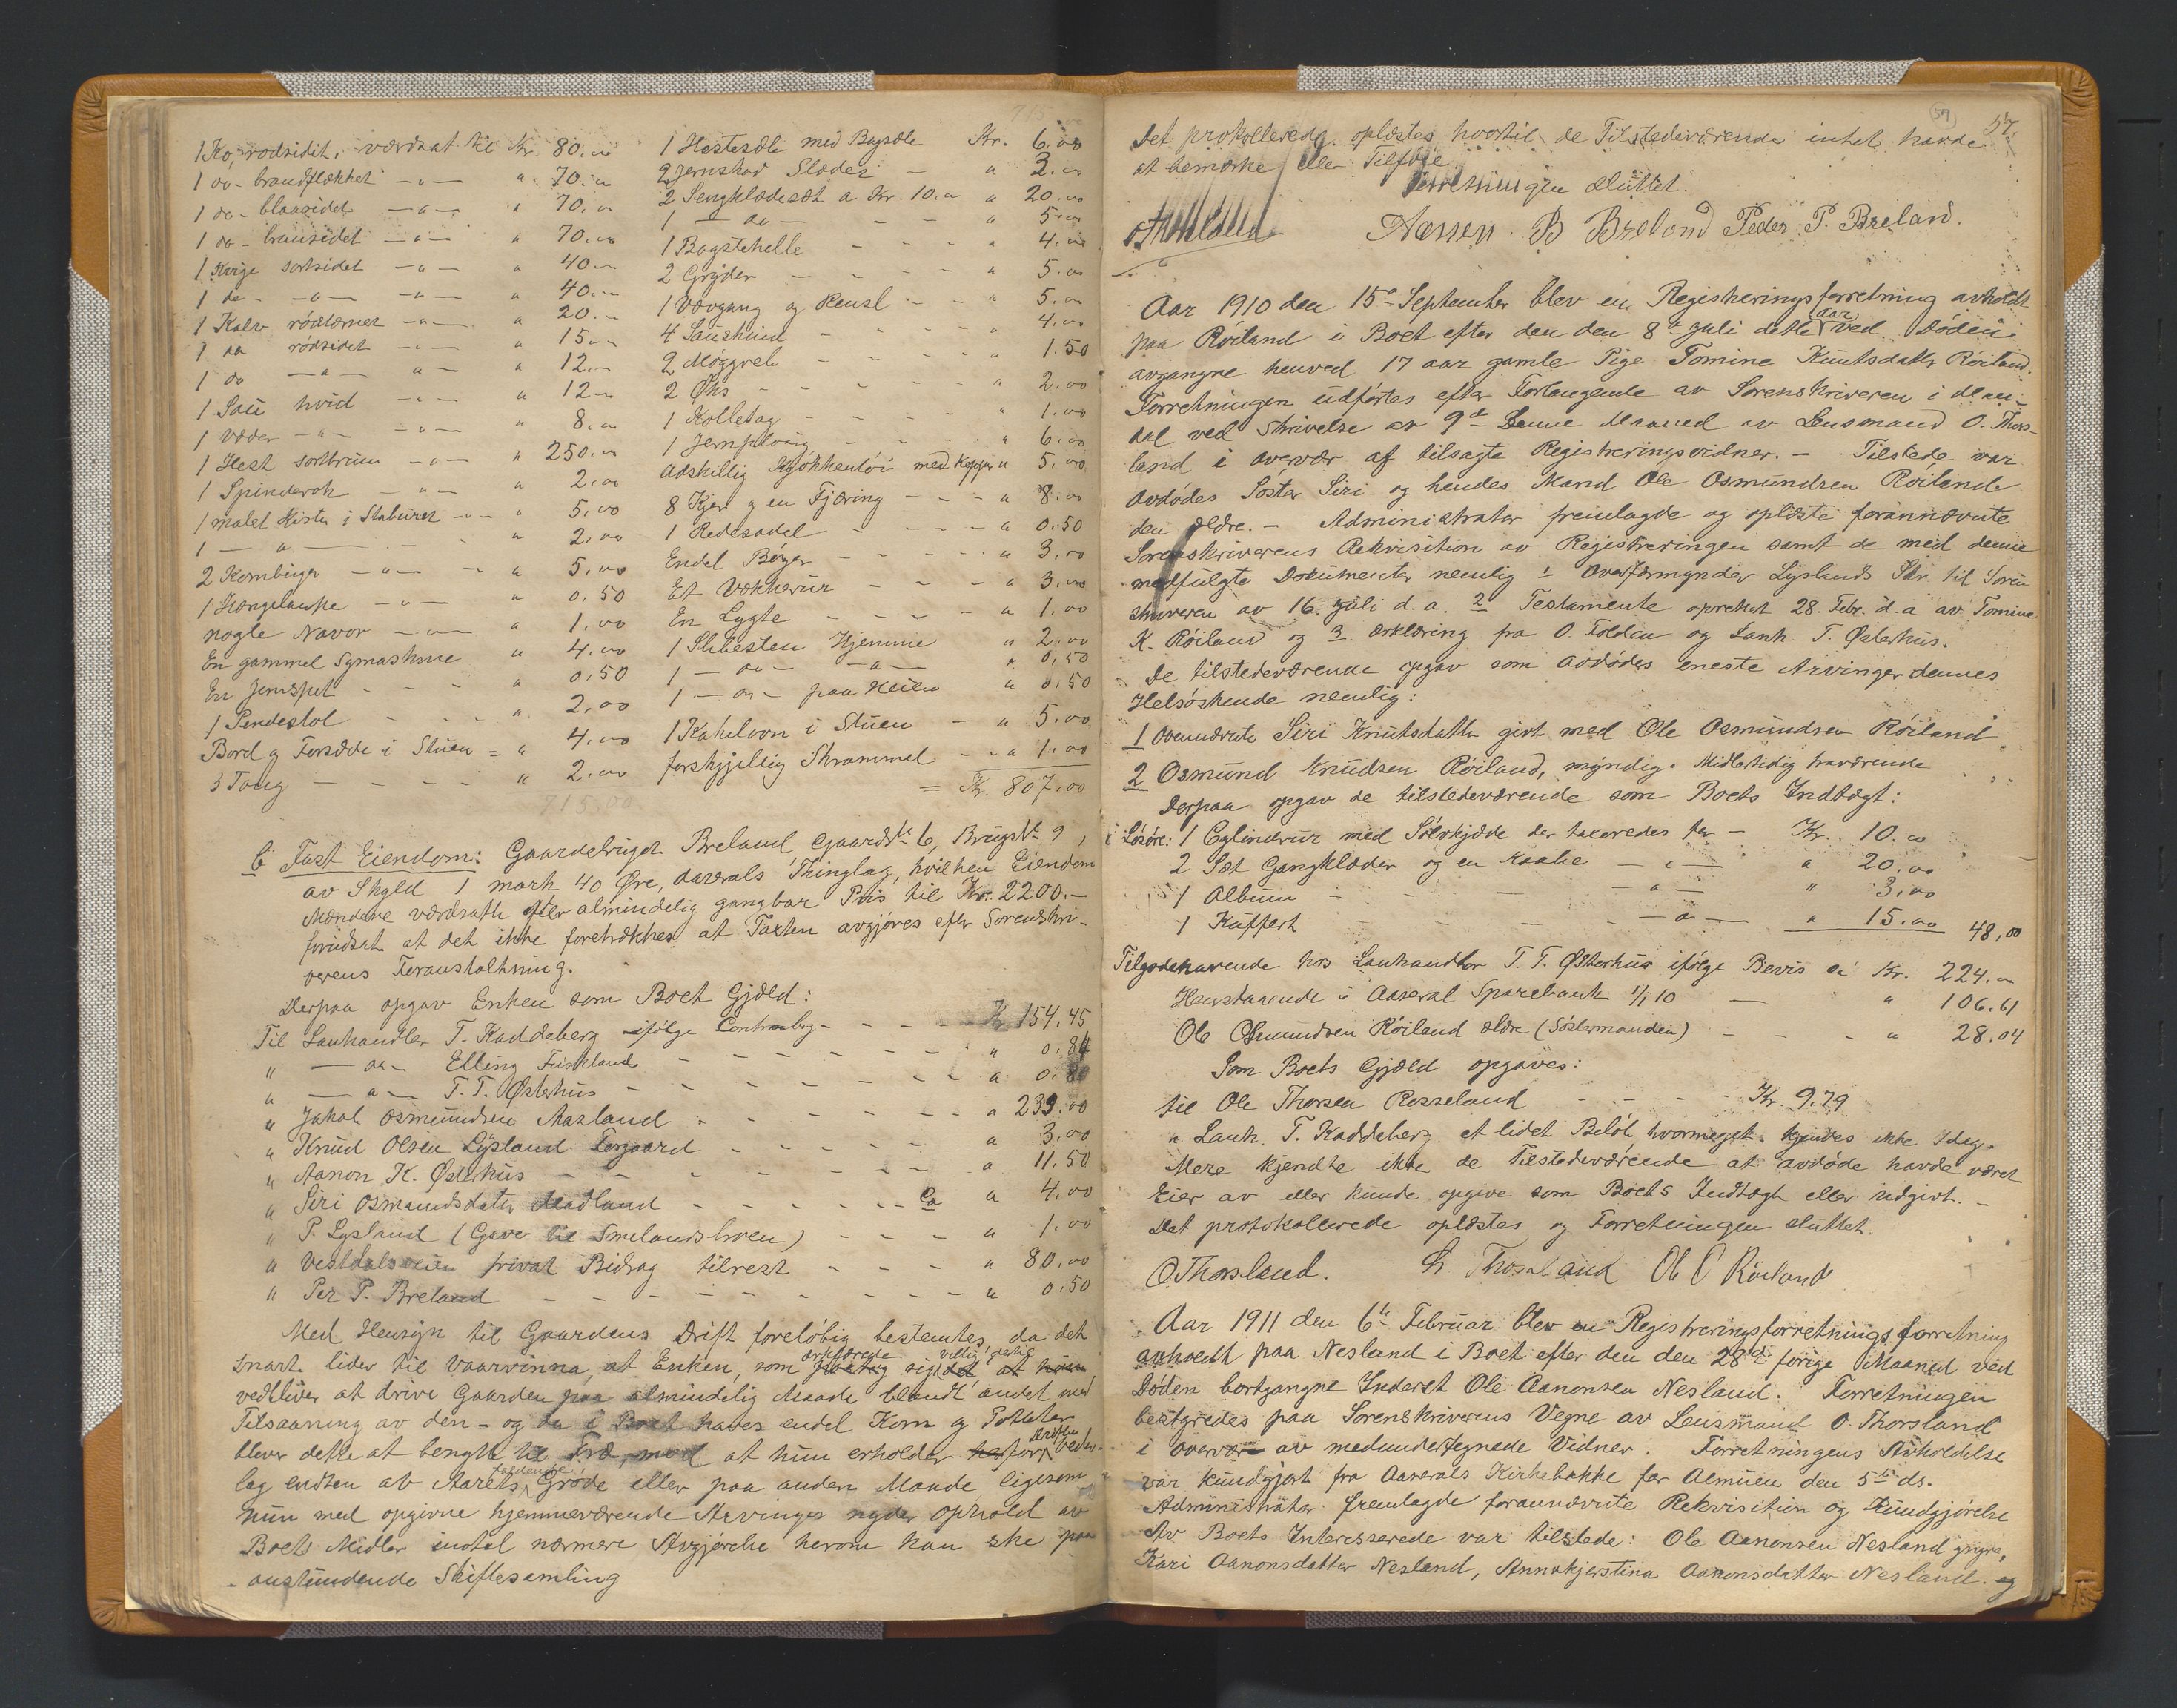 1 Ko, rødsidit, værdsat til Kr. 80.00
1 do - brandflækket - " - " 70.00
1 do - blaasidet - " - " 70.00
1 do - brunsidet - " - " 70.00
1 Kvige sortsidet - " - " 40.00
1 do - - " - - " - " 40.00
1 Kalv - " - " 20.00
1 do rødsidet - " - " 15.00
1 do - " - " - " 12.00
1 Sau hvid - " - " 12.00
1 Væder - " - - " - " 8.00
1 Hest sortbrun - " - " 250.00
1 Spinderok - " - " 2.00
1 malet Kiste i Staburet - " - " 5.00
1 - " - " 2.00
2 Kornbinger - " - " 5.00
1 Hængelampe - " - " 0.50
nogle Navor - " - " 1.00
En gammel Symaskine " 4.00
En Jernspet - - - " 0.50
1 Pendestol - - - " 2.00
Bord og Forsæde i Stuen = " 4.00
3 Tong - - - - " 2.00
715.00
1 Hestesæle med Bagsæle Kr. 6.00
2 Jernskod Slæder - " 3.00
2 Sengklædesæt a Kr. 10.00 " 20.00
1 - do - - - " 5.00
1 Bagstehelle - - - " 4.00
2 Gryder - - - - " 5.00
1 Vævgang og Rensl - - " 5.00
4 Saueskind - - - " 4.00
2 Møggreb - - - - " 1.50
2 Øks - - - - - " 2.00
1 Kolletag - - - - " 1.00
1 Jernploug - - - - " 6.00
Adskillig Kjøkkentøi med Kopper " 5.00
8 Kjør og en Fjæring - - - " 8.00
1 Redesadel - - - - " 0.50
Endel Bøger - - - - " 3.00
Et Vækkerur - - - " 3.00
En Lygte - - - - " 1.00
1 Slibesten Hjemme " 2.00
1 - do - - " - " 0.50
1 - do - paa Heien " 0.50
1 Kakelovn i Stuen - " 5.00
forskjellig Skrammel - - " 1.00
= Kr. 807.00
C Fast Eiendom: Gaardebruget Breland Gaards No 6, Brugs No 9,
av Skyld 1 mark 40 Øre, Aaserals Thinglag, hvilken Eiendom
Mændene værdsatte efter almindelig gangbar Pris til Kr. 2200.-
forudsat at det ikke foretrækkes at Taxten avgjøres efter Sorenskri-
verens Foranstaltning.
Derpaa opgav Enken som Boets Gjæld:
Til Lanhandler T. Kaddeberg ifølge Contrabog - - - - Kr. 154.45
" - do - Elling Friskland - - - - - - " 0.84
" - " - T. T. Østerhus - - - - - - " 0.80
" Jakob Osmundsen Aasland - - - - - " 239.00
" Knud Olsen Lysland Forgaard - - - - " 3.00
" Aanon K. Østerhus - - - - - - " 11.50
" Siri Osmundsdatter Aadland - - - - Ca " 4.00
" P. Lysland (Gave til Smelandsbroen) - - - " 1.00
" Vestdalsveien privat Bidrag tilrest - - - " 80.00
" Per P. Breland - - - - - - - " 0.50
Med Hensyn til Gaardens Drift foreløbig bestemtes, da det
snart lider til Vaarvinna, at Enken, som erklærede sig villig dertil
vedbliver at drive Gaarden paa almindelig Maade blandt andet med
Tilsaaning av den - og da i Boet haves endel Korn og Potteter
bliver dette at benytte til Frø, mod at hun erholder for Driften veder-
lag endten av Aarets faldende Grøde eller paa anden Maade, ligesom
hun med opgivne hjemmeværende Arvinger nyder ophold av
Boets Midler indtil nærmere Avgjørelse herom kan ske paa
anstundende Skiftesamling
57.
Det protokollerede oplæstes hvortil de Tilstedeværende intet havde
at bemærke eller Tilføie
Forretningen sluttet.
OThorsland Aanen B Breland Peder P. Breland.
Aar 1910 den 15de September blev en Registreringsforretning avholdt
paa Røiland i Boet efter den den 8de Juli dette aar ved Døden
avgangne henved 17 aar gamle Pige Tomine Knutsdatter Røiland.
Forretningen udførtes efter Forlangende av Sorenskriveren i Man-
dal ved Skrivelse av 9de denne Maaned av Lensmand O. Thors-
land i overvær af tilsagte Registreringsvidner. - Tilstede var
avdødes Søster Siri og hendes Mand Ole Osmundsen Røiland
den ældre. - Administrator fremlagde og oplæste forannævnte
Sorenskriverens Rekvisition av Registreringen samt de med denne
medfulgte Dokumenter nemlig 1 Overformynder Lyslands Skr. til Soren
skriveren av 16. Juli d. a. 2 Testamente oprettet 28. Febr. d. a av Tomine
K. Røiland og 3. Erklæring fra O. Foldøu og Lanh. T. Østerhus.
De tilstedeværende opgav som avdødes eneste Arvinger dennes
Helsøskende nemlig:
1 Ovennævnte Siri Knutsdatter givt med Ole Osmundsen Røiland
2 Osmund Knudsen Røiland, myndig. Midlertidig fraværende
Derpaa opgav de tilstedeværende som Boets Indtægt:
i Løsøre: 1 Cylinderur med Sølvkjæde der taxeredes for - Kr. 10.00
2 Sæt Gangklæder og en Kaabe - " - " 20.00
1 Album - - - " - " 3.00
1 Kuffert - - - " - " 15.00 48,00
Tilgodehavende hos Lanhandler T. T. Østerhus ifølge Bevis Kr. 224.00
Henstaaende i Aaseral Sparebank 1/1 10 - " 106.61
Ole Osmundsen Røiland ældre (Søstermanden) - - " 28.04
Som Boets Gjæld opgaves:
til Ole Thorsen Rosseland - - - - Kr. 9.79
" Lanh. T. Kaddeberg et lidet Beløb, hvormeget kjendes ikke idag.
Mere kjendte ikke de Tilstedeværende at avdøde havde været
Eier av eller kunde opgive som Boets Indtægt eller udgivt. -
Det protokollerede oplæstes og Forretningen sluttet.
OThorsland. Thorsland Ole O Røiland
Aar 1911 den 6te Februar blev en Registreringsforretnings forretning
avholdt paa Nesland i Boet efter den den 28de forige Maaned ved
Døden bortgangne Inderst Ole Aanonsen Nesland. Forretningen
bestyredes paa Sorenskriverens Vegne av Lensmand O. Thorsland
i overvær av medundertegnede Vidner. Forretningens Avholdelse
var kundgjort fra Aaserals Kirkebakke for Almuen den 5te ds.
Administrator fremlagde forannævnte Rekvisition og Kundgjørelse
Av Boets Interesserede var tilstede: Ole Aanonsen Nesland yngre,
Kari Aanonsdatter Nesland, Annakjerstina Aanonsdatter Nesland og